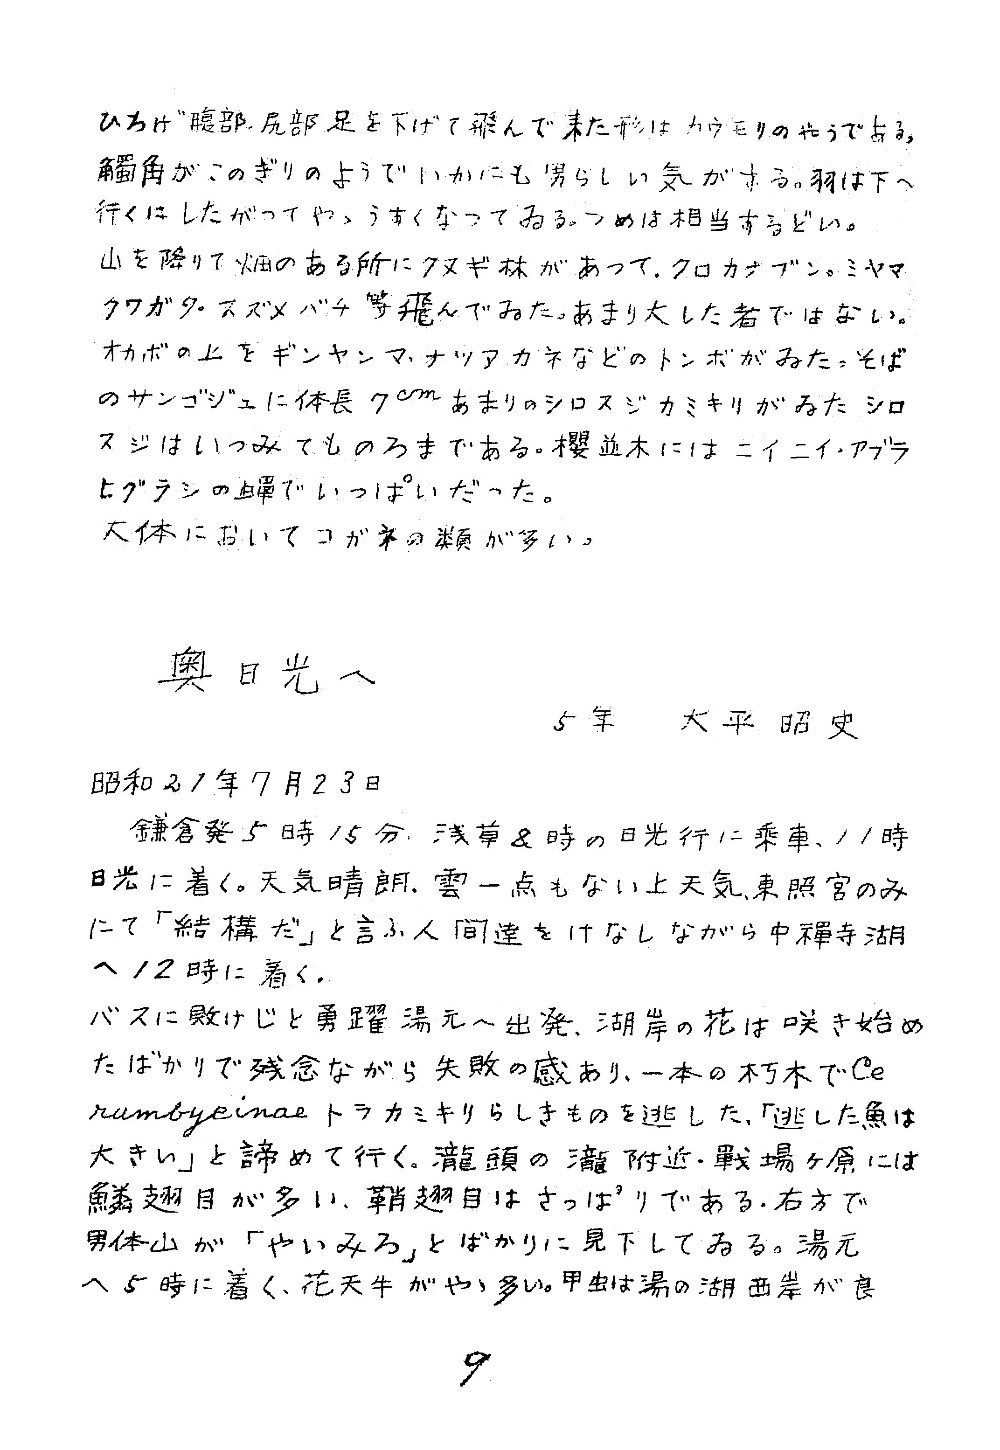 ひろげ腹部、尻部足を下げて飛んで来た形はカウモリのやうである。
觸角がこのぎりのようでいかにも男らしい気がする。羽は下へ
行くにしたがつてやゝうすくなつてゐる。つめは相当するどい。
山を降りて畑のある所にクヌギ林があつて、クロカナブン。ミヤマ
クワガタ・スズメバチ等飛んでゐた。あまり大した者ではない。
オカボの上をギンヤンマ、ナツアカネなどのトンボがゐた。そば
のサンゴジュに体長7cmあまりのシロスジカミキリがゐたシロ
スジはいつみてものろまである。櫻並木にはニイニイ・アブラ
ヒグラシの蟬でいっぱいだった。
大体においてコガネの類が多い。
奥日光へ
5年 大平昭史
昭和21年7月23日
鎌倉発5時15分、浅草8時の日光行に乗車、11時
日光に着く。天気晴朗、雲一点もない上天気、東照宮のみ
にて「結構だ」と言ふ人間達をけなしながら中禪寺湖
へ12時に着く。
バスに敗けじと勇躍湯元へ出発、湖岸の花は咲き始め
たばかりで残念ながら失敗の感あり、一本の朽木でCe
rumbyeinaeトラカミキリらしきものを逃した、「逃した魚は
大きい」と諦めて行く。瀧頭の瀧附近・戰場ヶ原には
鱗翅目が多い、鞘翅目はさっぱりである・右方で
男体山が「やいみろ」とばかりに見下してゐる。湯元
へ5時に着く、花天牛がやゝ多い。甲虫は湯の湖西岸が良
9